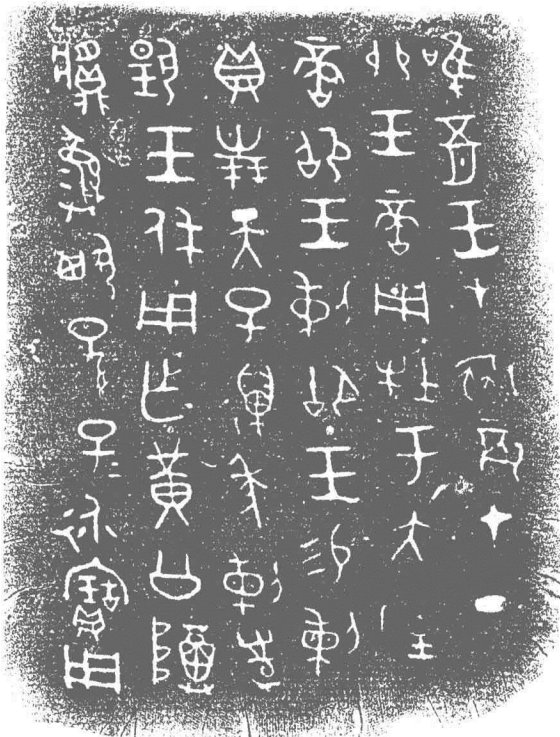 唯五月王才衣辰才丁
卯王啻用牡于大室
啻卲王剌御王易剌
貝卅朋天子萬年剌對
揚王休用乍黃公尊
䵼彝其孫＝子＝永寶用